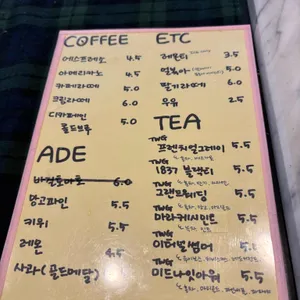 COFFEE
에스프레소 4.5
아메리카노 4.5
카페라떼 5.5
크림라떼 6.0
디카페인
콜드브루 5.5
ADE
바질토마토 6.0
망고파인 5.5
키위 5.5
레몬 4.5
사과(골드메달) 5.5
ETC
레몬티 3.5
밀볶아 5.0
딸기라떼 6.0
우유 2.5
TEA
TWG
프렌치얼그레이 5.5
TWG
1837 블랙티 5.5
TWG
그랜드웨딩 5.5
TWG
마라케시민트 5.5
TWG
이터널썸머 5.5
TWG
미드나잇아워 5.5